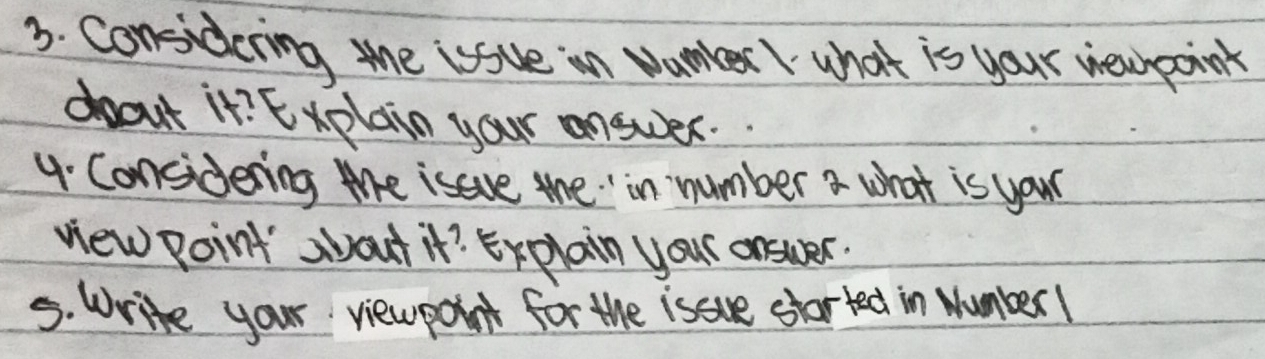 3. Considering the issue in Number 1. what is your viewpoint
about it? Explain your answer.
4. Considering the issue the in number 2 what is your
view point about it? Explain your answer.
5. Write your viewpoint for the issue started in Number 1